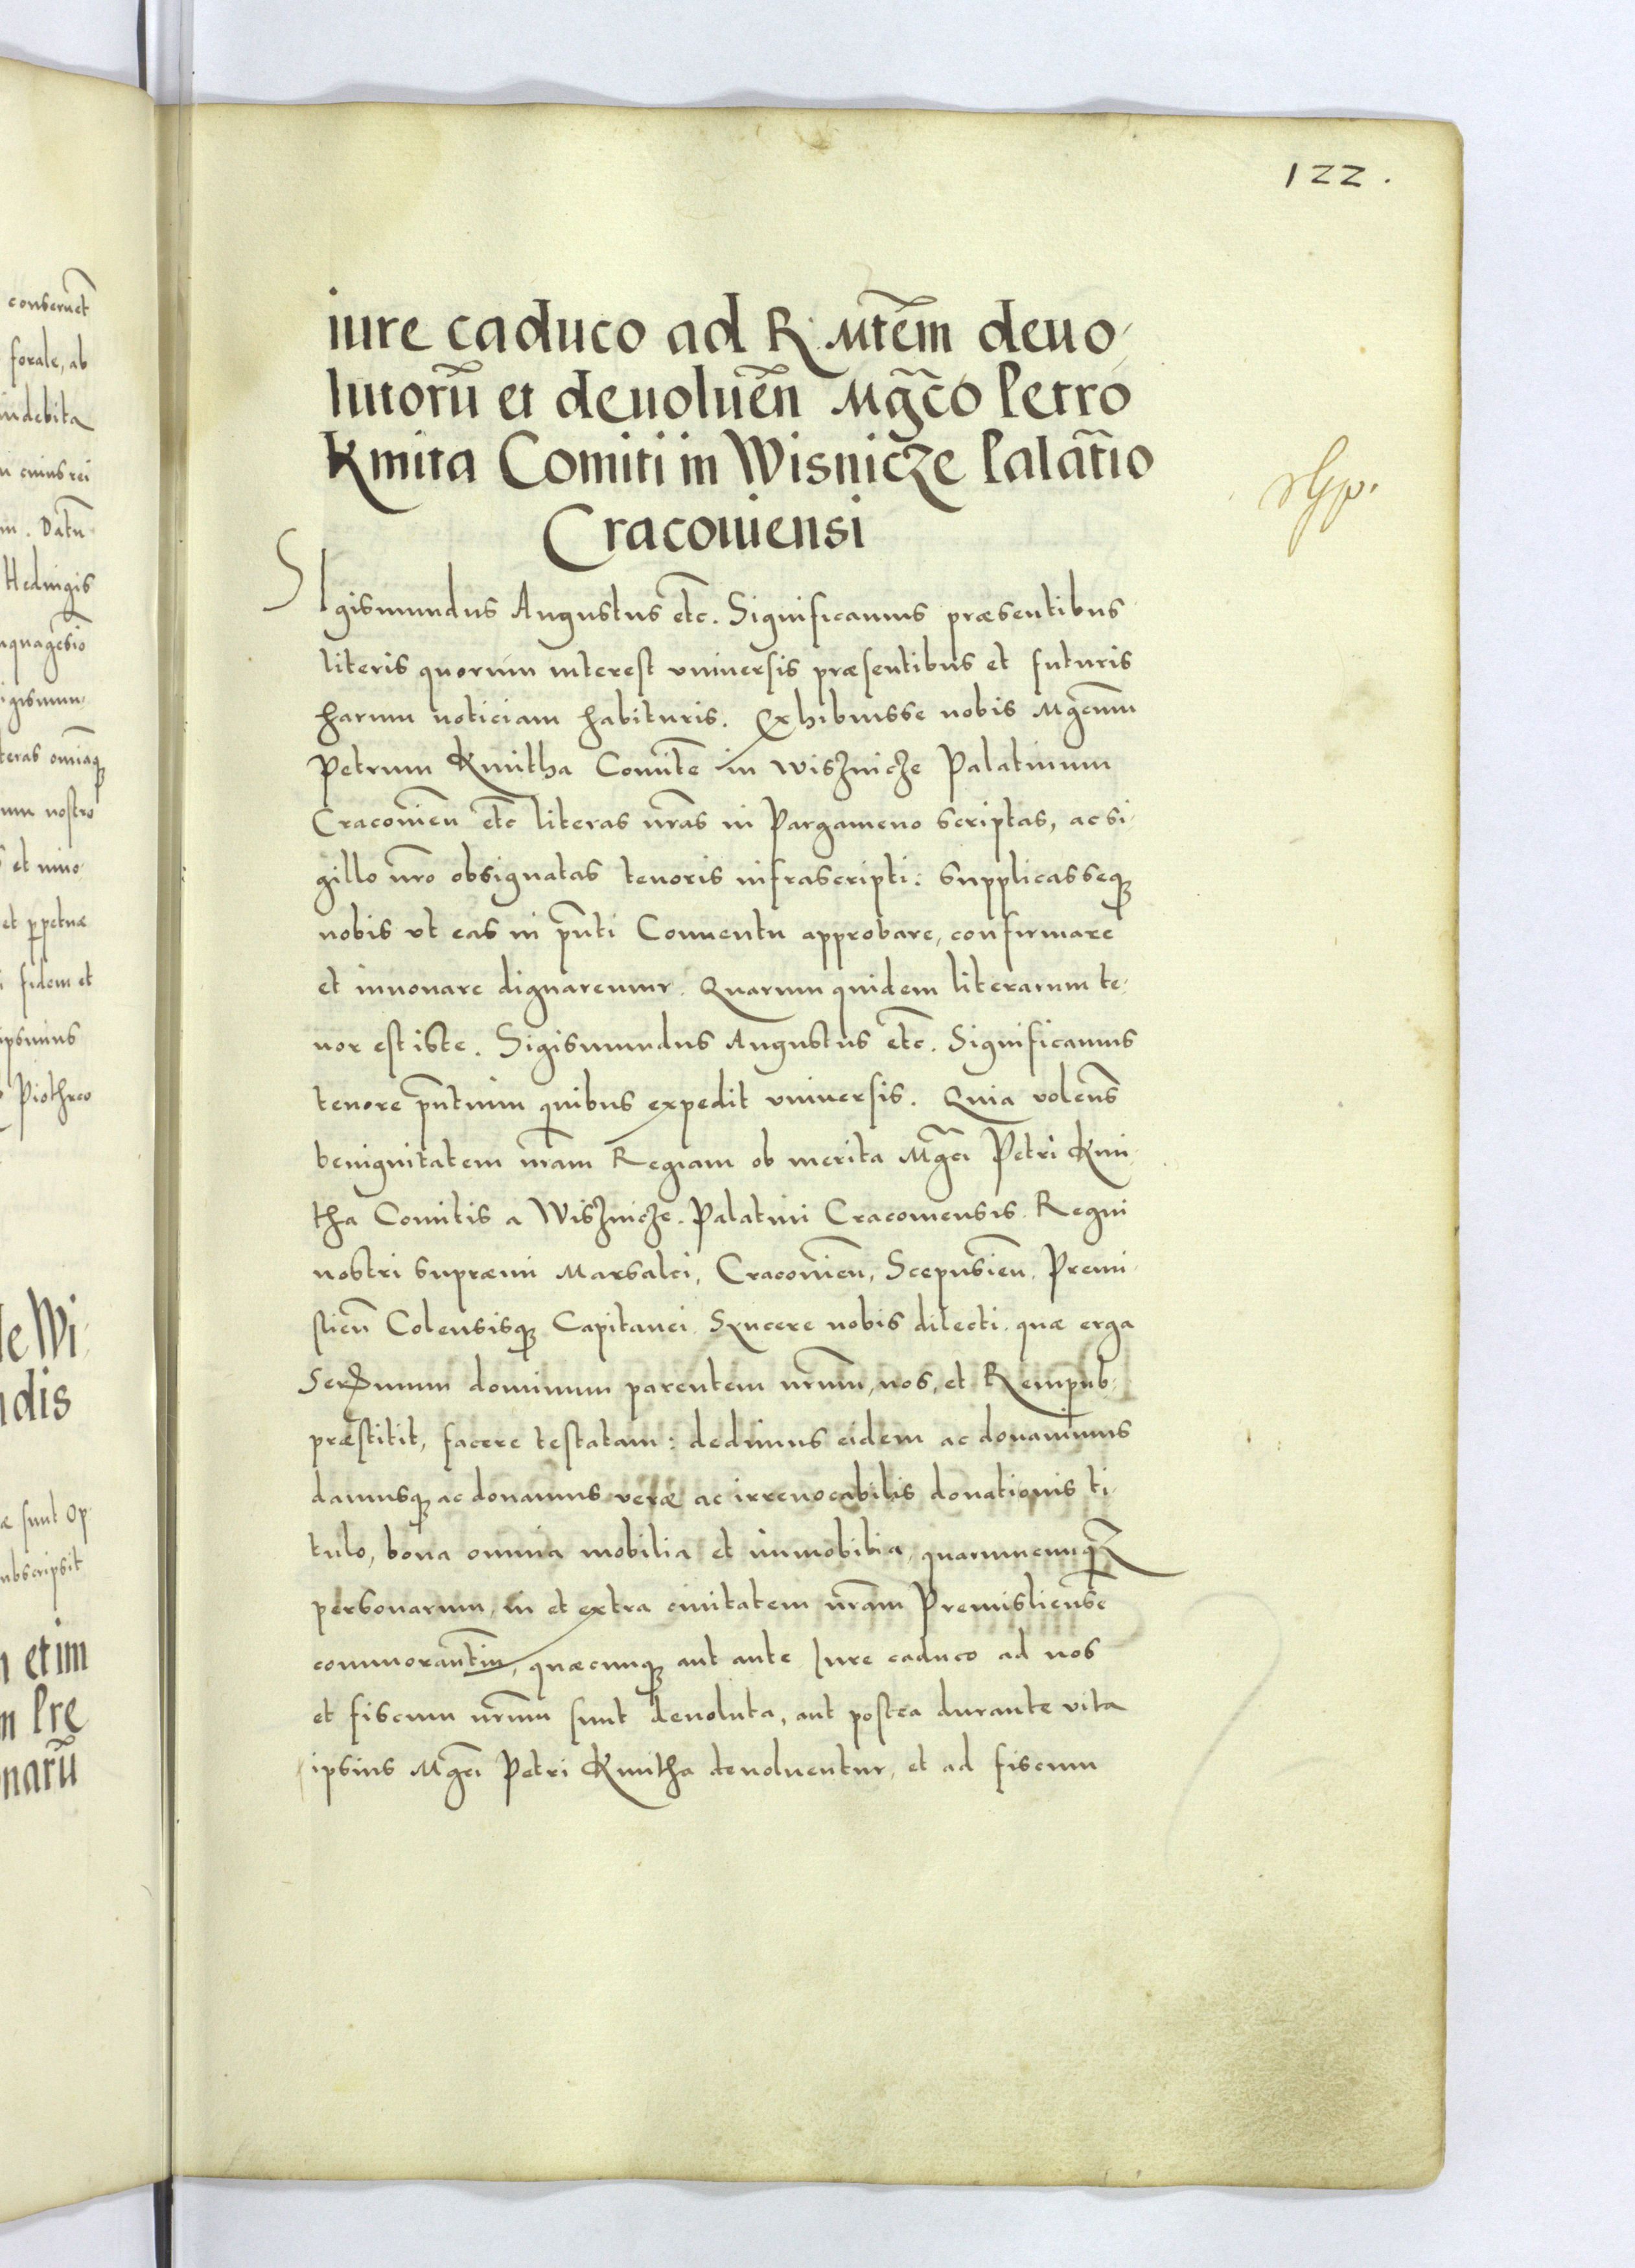 122.
iure caduco ad R. Mtẽm deuo-
lutorũ et deuoluẽn Mgc̃o Petro
Kmita Comiti in Wisnicze Palat̃io
Cracouiensi
SIgismundus Augustus etc̃. Significamus præsentibus
literis quorum interest vniuersis præsentibus et futuris
harum noticiam habituris. Exhibuisse nobis Mgcũm
Petrum Kmitha Comitẽ in Wisznicze Palatinum
Cracouieñ etc̃ literas nr̃as in Pargameno scriptas, ac si-
gillo nr̃o obsignatas tenoris infrascripti: supplicasseq3
nobis vt eas in pñti Conuentu approbare, confirmare
et innouare dignaremur. Quarum quidem literarum te-
nor est iste. Sigismundus Augustus etc̃. Significamus
tenore pñtium quibus expedit vniuersis. Quia volens
benignitatem nr̃am Regiam ob merita Mgc̃i Petri Kmi-
tha Comitis a Wisznicze. Palatini Cracouiensis. Regni
nostri supræmi Marsalci, Cracouieñ, Scepusieñ, Premi-
slieñ Colensisq3 Capitanei. Syncere nobis dilecti. quæ erga
Ser̃mum dominum parentem nr̃um, nos, et Rempub-
præstitit, facere testatam: dedimus eidem ac donauimus
damusq3 ac donamus veræ ac irreuocabilis donationis ti-
tulo, bona omnia mobilia et immobilia, quarumcunq3
personarum, in et extra ciuitatem nr̃am Premisliensẽ
commorantiũ, quæcunq3 aut ante Iure caduco ad nos
et fiscum nr̃um sunt deuoluta, aut postea durante vita
ipsius Mgc̃i Petri Kmitha deuoluentur, et ad fiscum